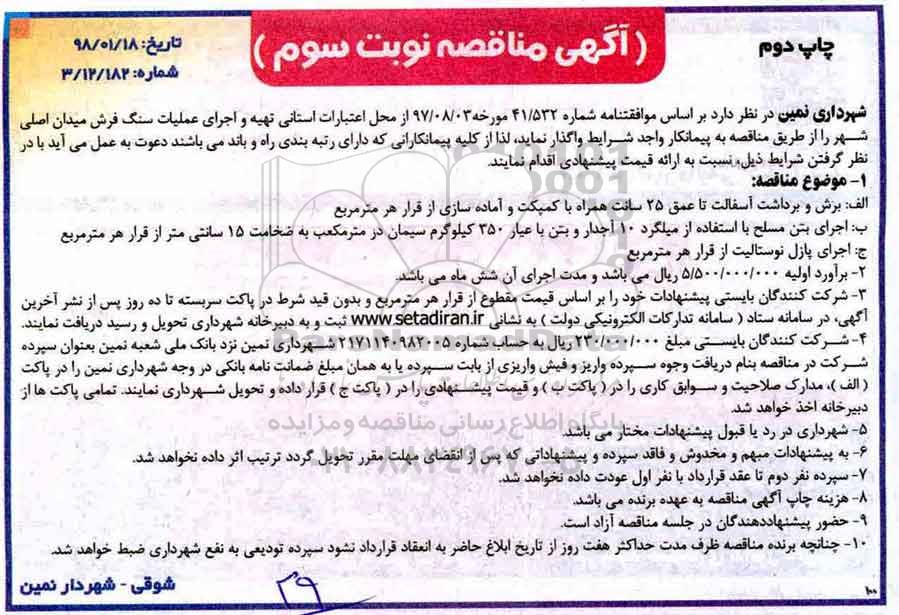 چاپ دوم
( آگهی مناقصه نوبت سوم )
تاریخ: ۹۸/۰۱/۱۸
شماره: ۳/۱۲/۱۸۲
شهرداری نمین در نظر دارد بر اساس موافقتنامه شماره ۴۱/۵۳۲ مورخه۹۷/۰۸/۰۳ از محل اعتبارات استانی تهیه و اجرای عملیات سنگ فرش میدان اصلی
شهر را از طریق مناقصه به پیمانکار واجد شرایط واگذار نماید، لذا از کلیه پیمانکارانی که دارای رتبه بندی راه و باند می باشند دعوت به عمل می آید با در
نظر گرفتن شرایط ذیل، نسبت به ارائه قیمت پیشنهادی اقدام نمایند.
۱- موضوع مناقصه:
الف: برش و برداشت آسفالت تا عمق ۲۵ سانت همراه با کمپکت و آماده سازی از قرار هر مترمربع
ب: اجرای بتن مسلح با استفاده از میلگرد ۱۰ آجدار و بتن با عیار ۳۵۰ کیلوگرم سیمان در مترمکعب به ضخامت ۱۵ سانتی متر از قرار هر مترمربع
ج: اجرای پازل نوستالیت از قرار هر مترمربع
۲- برآورد اولیه ۵/۵۰۰/۰۰۰/۰۰۰ ریال می باشد و مدت اجرای آن شش ماه می باشد.
۳- شرکت کنندگان بایستی پیشنهادات خود را بر اساس قیمت مقطوع از قرار هر مترمربع و بدون قید شرط در پاکت سربسته تا ده روز پس از نشر آخرین
آگهی، در سامانه ستاد ( سامانه تدارکات الکترونیکی دولت ) به نشانی www.setadiran.ir ثبت و به دبیرخانه شهرداری تحویل و رسید دریافت نمایند.
۴- شرکت کنندگان بایستی مبلغ ۲۳۰/۰۰۰/۰۰۰ ریال به حساب شماره ۲۱۷۱۱۴۰۹۸۲۰۰۵ شهرداری نمین نزد بانک ملی شعبه نمین بعنوان سپرده
شرکت در مناقصه بنام دریافت وجوه سپرده واریز و فیش واریزی از بابت سپرده یا به همان مبلغ ضمانت نامه بانکی در وجه شهرداری نمین را در پاکت
( الف )، مدارک صلاحیت و سوابق کاری را در ( پاکت ب ) و قیمت پیشنهادی را در ( پاکت ج ) قرار داده و تحویل شهرداری نمایند. تمامی پاکت ها از
دبیرخانه اخذ خواهد شد.
۵- شهرداری در رد یا قبول پیشنهادات مختار می باشد.
۶- به پیشنهادات مبهم و مخدوش و فاقد سپرده و پیشنهاداتی که پس از انقضای مهلت مقرر تحویل گردد ترتیب اثر داده نخواهد شد.
۷- سپرده نفر دوم تا عقد قرارداد با نفر اول عودت داده نخواهد شد.
۸- هزینه چاپ آگهی مناقصه به عهده برنده می باشد.
۹- حضور پیشنهاددهندگان در جلسه مناقصه آزاد است.
۱۰- چنانچه برنده مناقصه ظرف مدت حداکثر هفت روز از تاریخ ابلاغ حاضر به انعقاد قرارداد نشود سپرده تودیعی به نفع شهرداری ضبط خواهد شد.
شوقی - شهردار نمین
۲۹
۱۰۰
پایگاه اطلاع رسانی مناقصه و مزایده